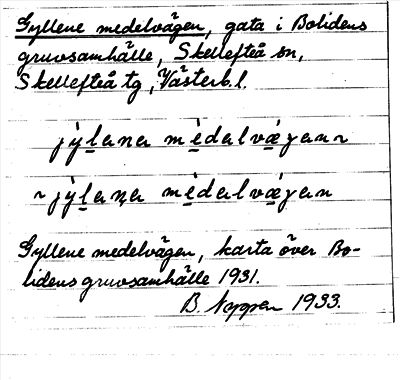 Gyllene medelvägen, gata i Bolidens
gruvsamhälle, Skellefteå sn,
Skellefteå tg, Västerb. l.
jỳl̲ana mèdalvǽγan ~
~ jỳl̲ana mèdalvǽγan
Gyllene medelvägen, karta över Bo-
lidens gruvsamhälle 1931.
B. 1933.